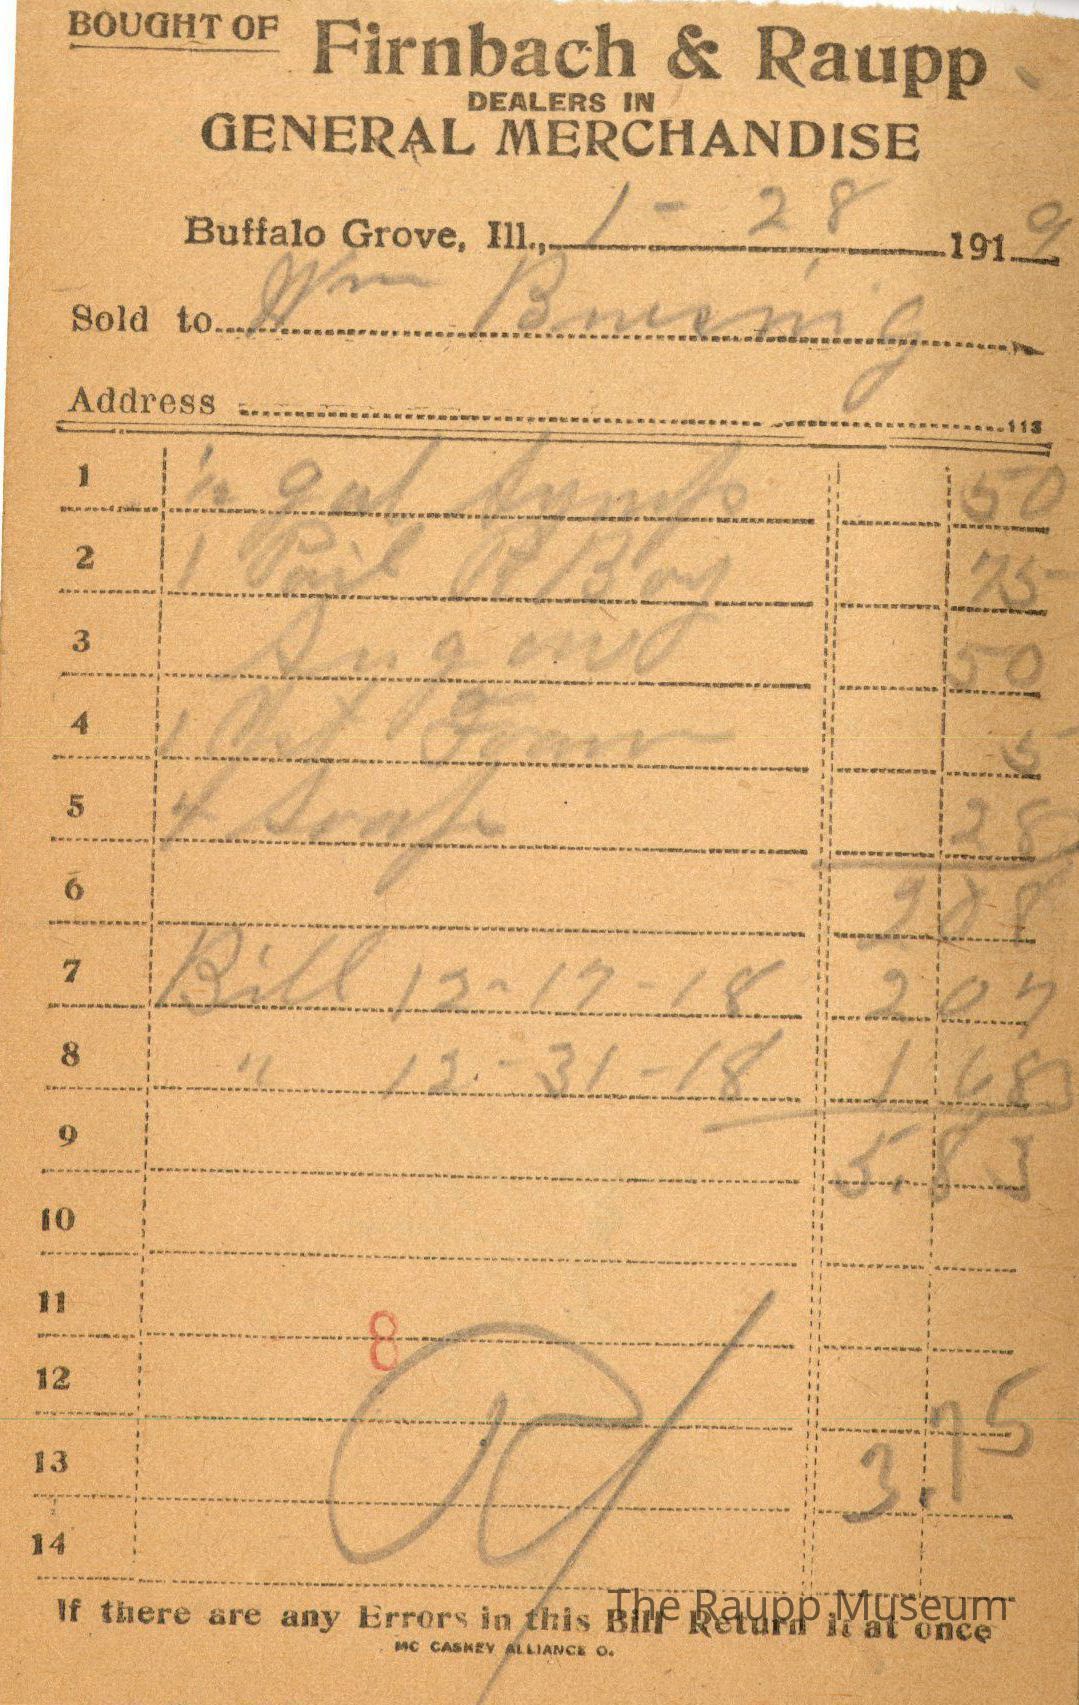 BOUGHT OF Firnbach & Raupp
DEALERS IN
GENERAL MERCHANDISE
Buffalo Grove, Ill., 1-28 1919
Sold to Wm
Address 113
1 ½ gal 50
2 1 Pail R Boy 75
3 50
4 1 Foam 5
5 4 Soap 28
6 208
7 Bill 12-17-18 2 07
8 " 12-31-18 1 68
9 5.83
10
11
8
12
3.75
13
14
If there are any Errors in this Bill Return it at once
MC CASKEY ALLIANCE O.
The Raupp Museum